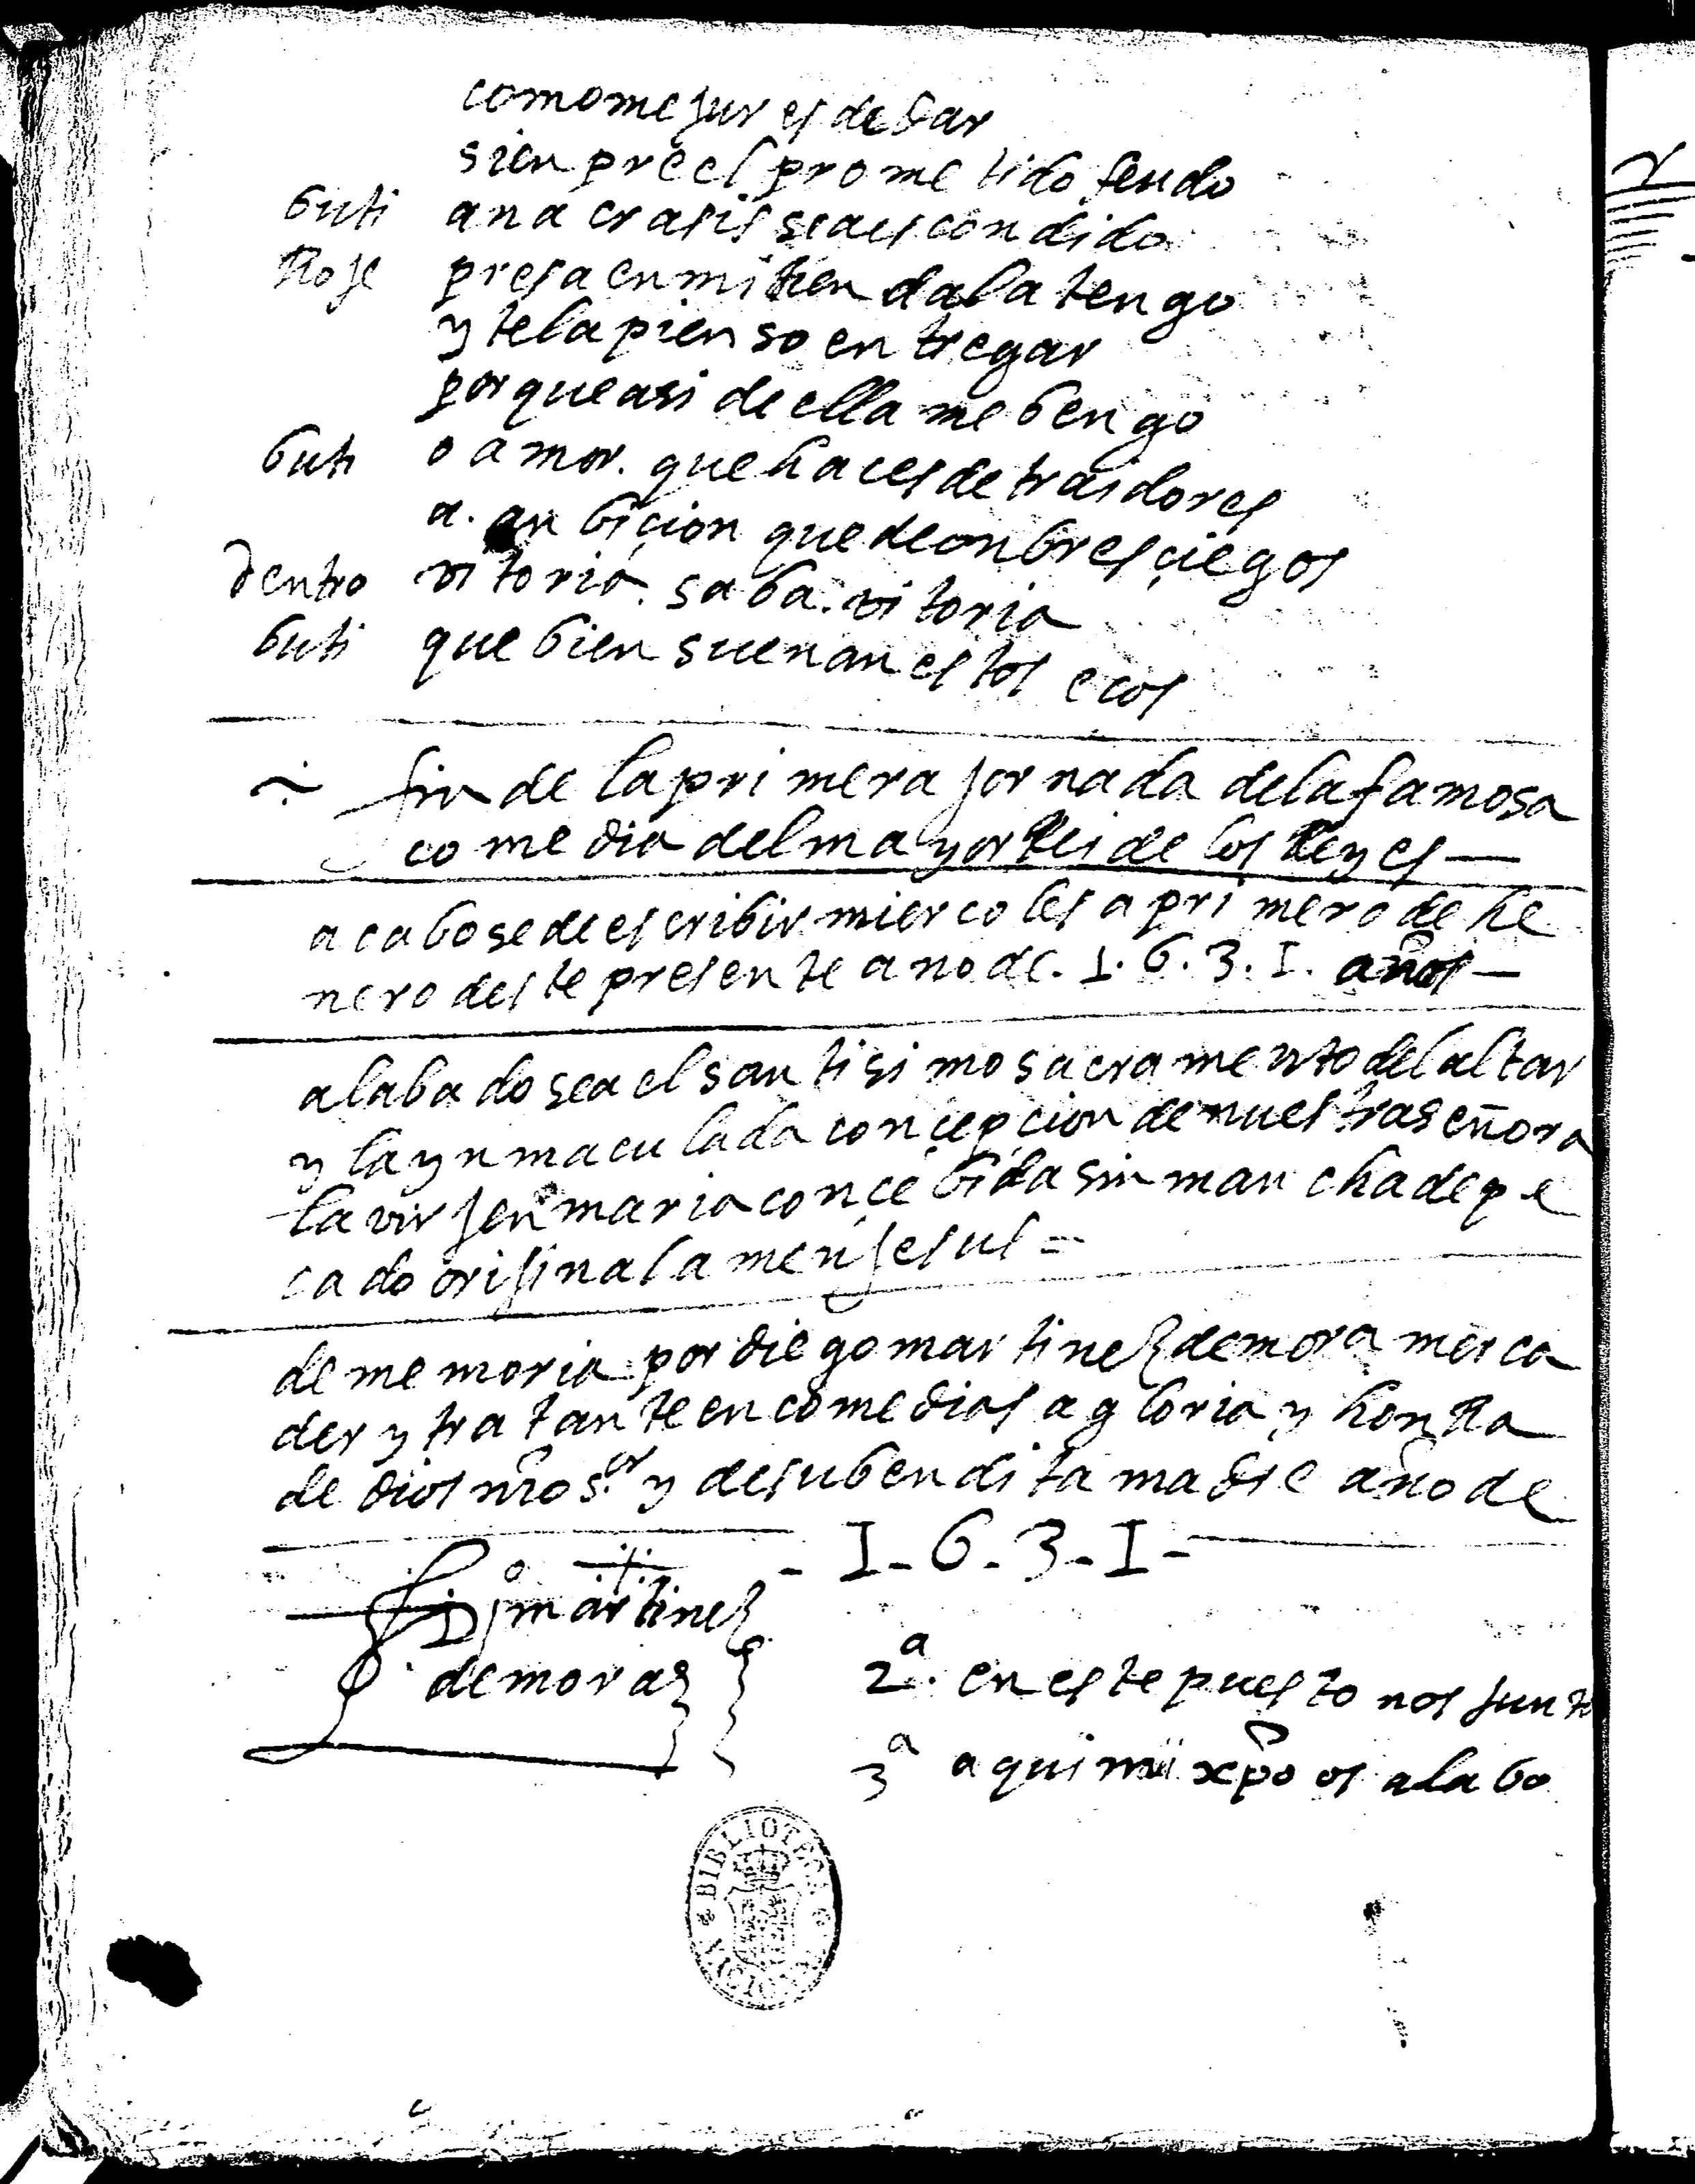 como me jures de dar
sienpre el prometido feudo
buti ana crasis se a escondido
Roje presa en mi tienda la tengo
y te la pienso entregar
porque asi de ella me bengo
buti o amor. que haces de traidores
a. anbicion que de onbres çiegos
dentro vitoria. saba. vitoria
buti que bien suenan estos ecos
fin de la primera jornada de la famosa
comedia del mayor Rei de los Reyes —
acabose de escribir miercoles a primero de he
nero deste presente ano de. 1. 6. 3. I. años —
alabado sea el santisimo sacramento del altar
y la ynmaculada conçepçion de nuestra señora
la virjen maria concebida sin mancha de pe
cado orijinal amen jesus =
de memoria por diego martinez de mora merca
der y tratante en comedias a gloria y honRa
de dios nro s.or y de su bendita madre año de
- I - 6 - 3 - I -
martinez
de mora
2a. en este puesto nos junto
3a aqui mi xpo os alabo
BIBLIOTECA NACIONAL